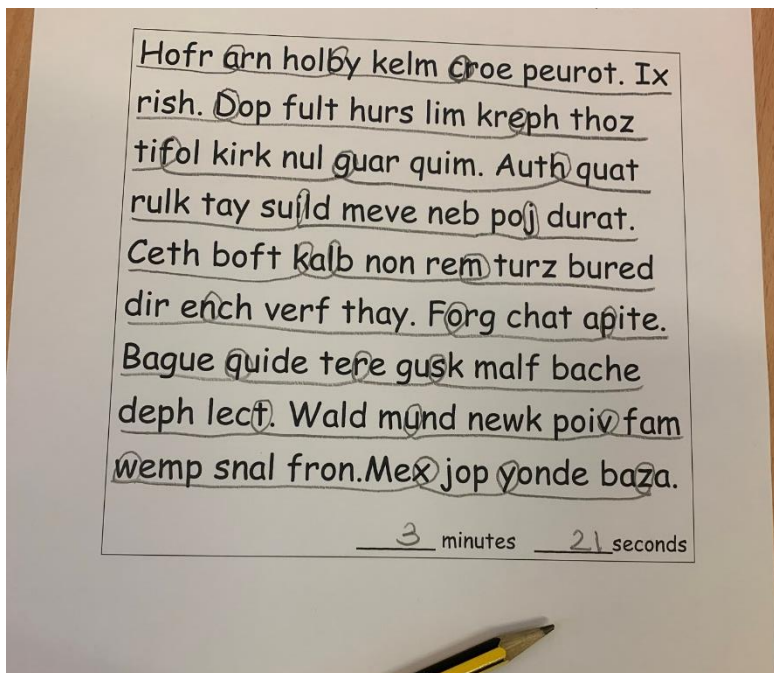 Hofr arn holby kelm croe peurot. Ix
rish. Dop fult hurs lim kreph thoz
tifol kirk nul guar quim. Auth quat
rulk tay suild meve neb poj durat.
Ceth boft kalb non rem turz bured
dir ench verf thay. Forg chat apite.
Bague quide tere gusk malf bache
deph lect. Wald mund newk poiv fam
wemp snal fron.Mex jop yonde baza.
3 minutes 21 seconds